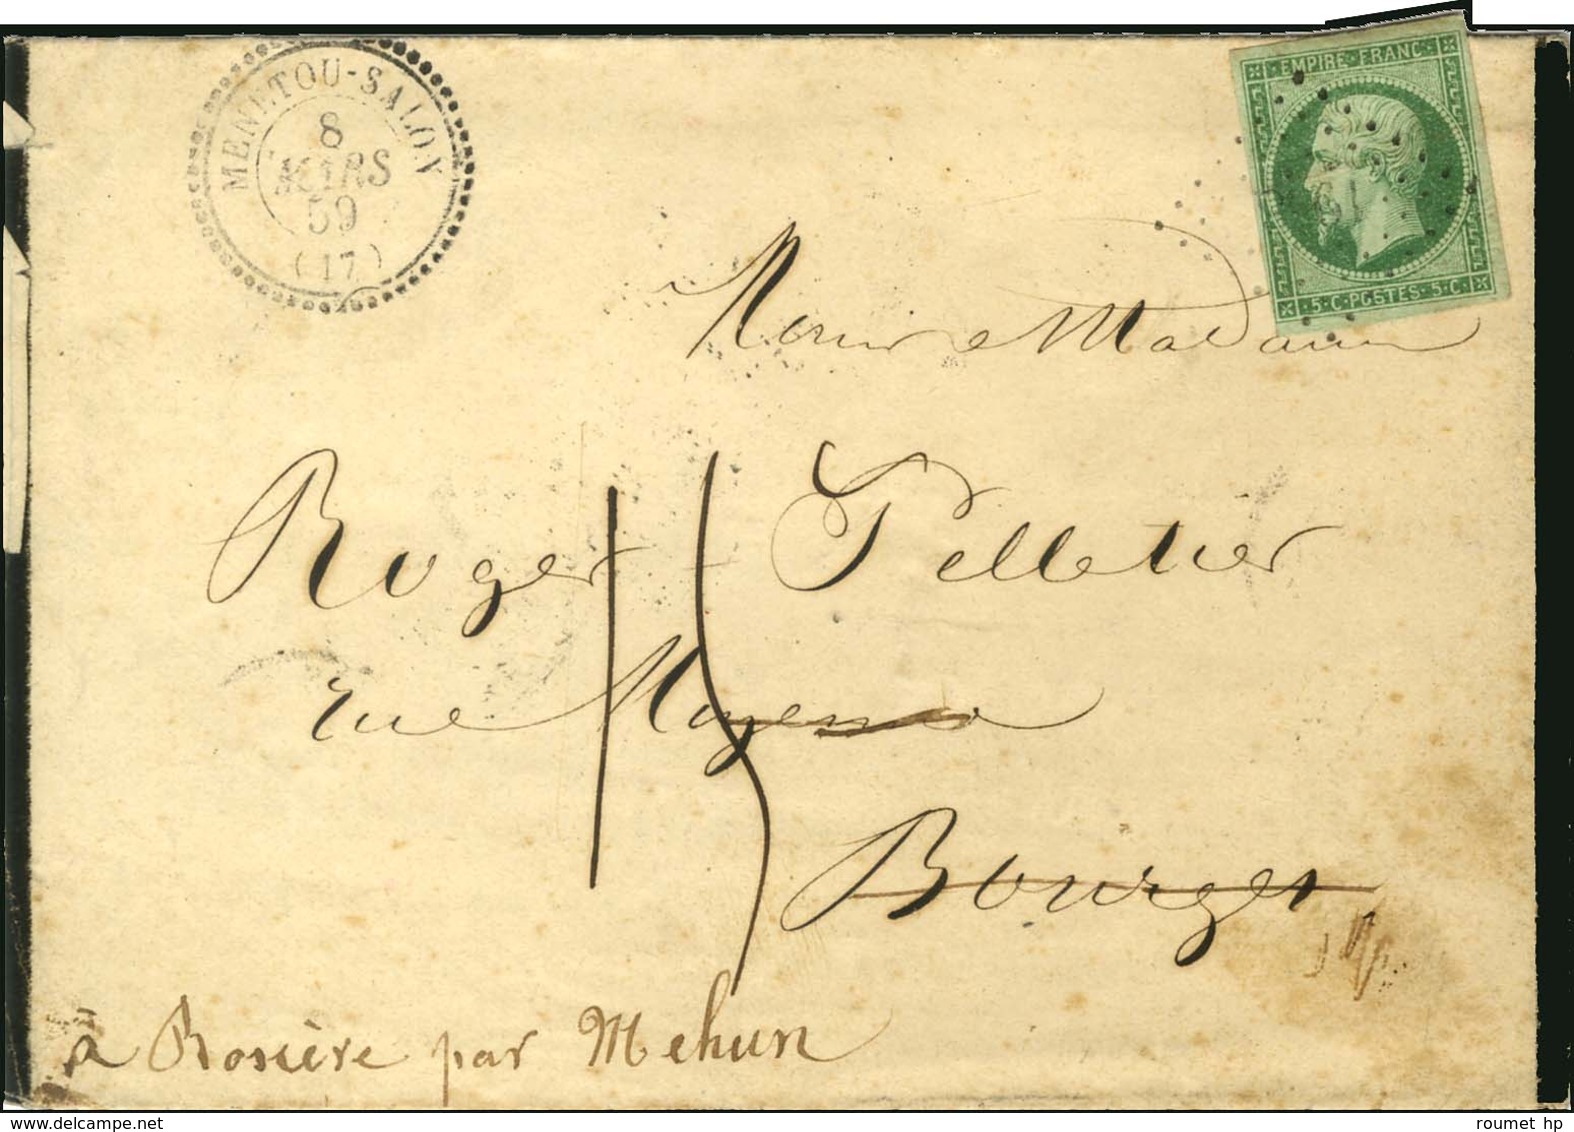 MENETOU-SALON
8
MARS
59
(17)
EMPIRE FRANC
5 C POSTES 5 C
Madame
Roger Pelletier
15
rue Moyenne
Bourges
à Rosière par Mehun
roumet hp
delcampe.net